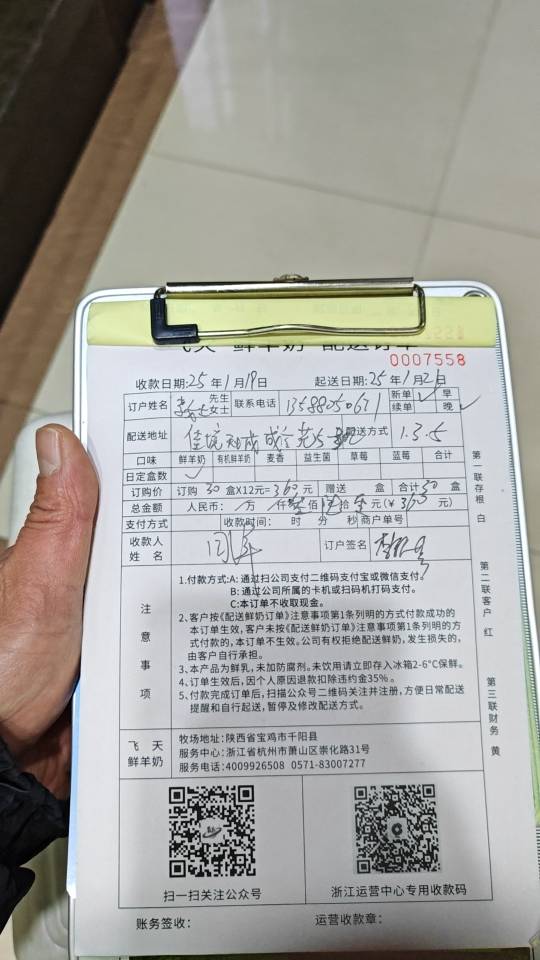 飞天"鲜羊奶"配送订单
0007558
收款日期:25年1月19日 起送日期:25年1月21日
订户姓名 先生 女士 联系电话 13588050671 新单 早
续单 晚
配送地址 佳境 配送方式 1.3.5
口味 鲜羊奶 有机鲜羊奶 麦香 益生菌 草莓 蓝莓 合计
日定盒数
订购价 订购30盒X12元=360元 赠送 盒 合计30盒
总金额 人民币: 万 仟 叁佰 陆拾 元(¥360元)
支付方式 收款时间: 时 分 秒 商户单号
收款人姓名 订户签名
注意事项
1.付款方式:A:通过扫公司支付二维码支付宝或微信支付。
B:通过公司所属的卡机或扫码机打码支付。
C:本订单不收取现金。
2、客户按《配送鲜奶订单》注意事项第1条列明的方式付款成功的
本订单生效,客户未按《配送鲜奶订单》注意事项第1条列明的方
式付款的,本订单不生效。公司有权拒绝配送鲜奶,发生损失的,
由客户自行承担。
3、本产品为鲜乳,未加防腐剂。未饮用请立即存入冰箱2-6°C保鲜。
4、订单生效后,因个人原因退款扣除违约金35%。
5、付款完成订单后,扫描公众号二维码关注并注册,方便日常配送
提醒和自行起送,暂停及修改配送方式。
飞天鲜羊奶
牧场地址:陕西省宝鸡市千阳县
服务中心:浙江省杭州市萧山区崇化路31号
服务电话:4009926508 0571-83007277
扫一扫关注公众号 浙江运营中心专用收款码
账务签收: 运营收款章:
第一联存根 白
第二联客户 红
第三联财务 黄